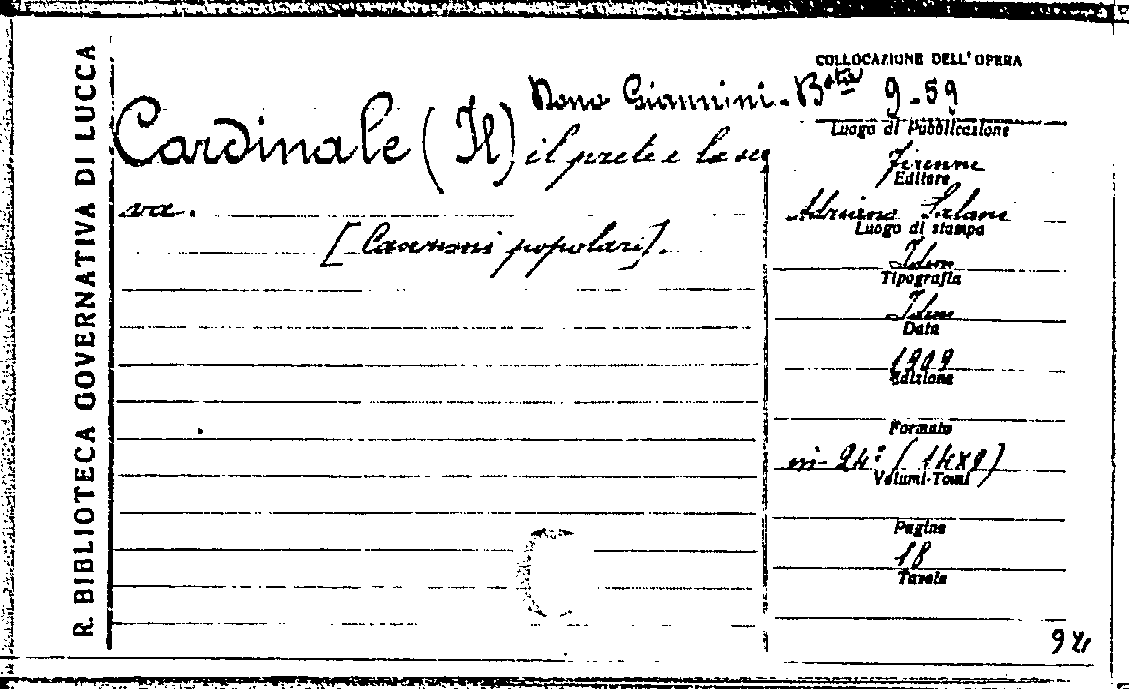 R. BIBLIOTECA GOVERNATIVA DI LUCCA
COLLOCAZIONE DELL'OPERA
Dono Giannini - B.sta 9-59
Cardinale (Il) il prete e la ser
va.
[Canzoni popolari].
Luogo di Pubblicazione
Firenze
Editore
Adriano Salani
Luogo di stampa
Idem
Tipografia
Idem
Data
1909
Edizione
Formato
in-24° (14x9)
Volumi-Tomi
Pagine
18
Tavole